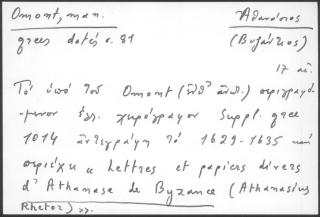 Omont, man. Ἀθανάσιος
grecs datés σ. 81 (Βυζάντιος)
17 αἰ.
Τό ὑπό τοῦ Omont (ἔνθ' ἀνωτ.) περιγραφό-
μενον ἑλλ. χειρόγραφον Suppl. grec
1014 ἀντεγράφη τό 1629-1635 καί
περιέχει « Lettres et papiers divers
d'Athanase de Byzance (Athanasius
Rhetor) ».